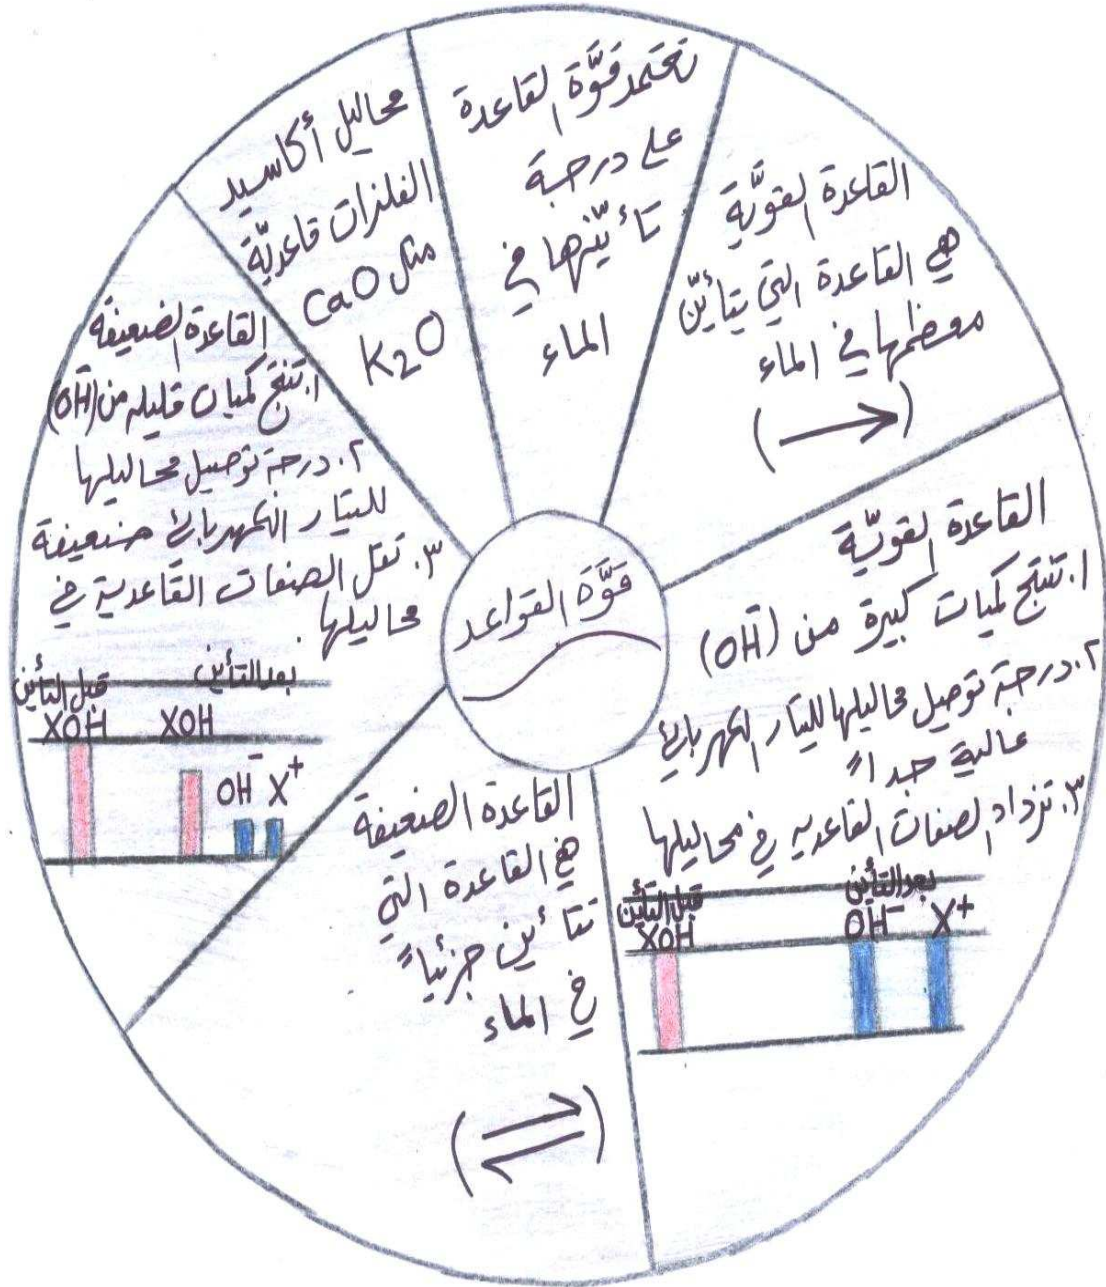 قوَّة القواعد
تعتمد قوَّة القاعدة
على درجة
تأيّنها في
الماء
القاعدة القويَّة
هي القاعدة التي يتأيّن
معظمها في الماء
(→)
القاعدة القويّة
١. تنتج كميات كبيرة من (OH⁻)
٢. درجة توصيل محاليلها للتيار الكهربائي
عالية جداً
٣. تزداد الصفات القاعديه في محاليلها
قبل التأين بعد التأين
XOH OH⁻ X⁺
القاعدة الضعيفة
هي القاعدة التي
تتأين جزئياً
في الماء
(⇌)
القاعدة الضعيفة
١. تنتج كميات قليله من (OH⁻)
٢. درجة توصيل محاليلها
للتيار الكهربائي ضعيفة
٣. تقل الصفات القاعدية في
محاليلها.
قبل التأين بعد التأين
XOH XOH
OH⁻ X⁺
محاليل أكاسيد
الفلزات قاعديَّة
مثل CaO
K₂O